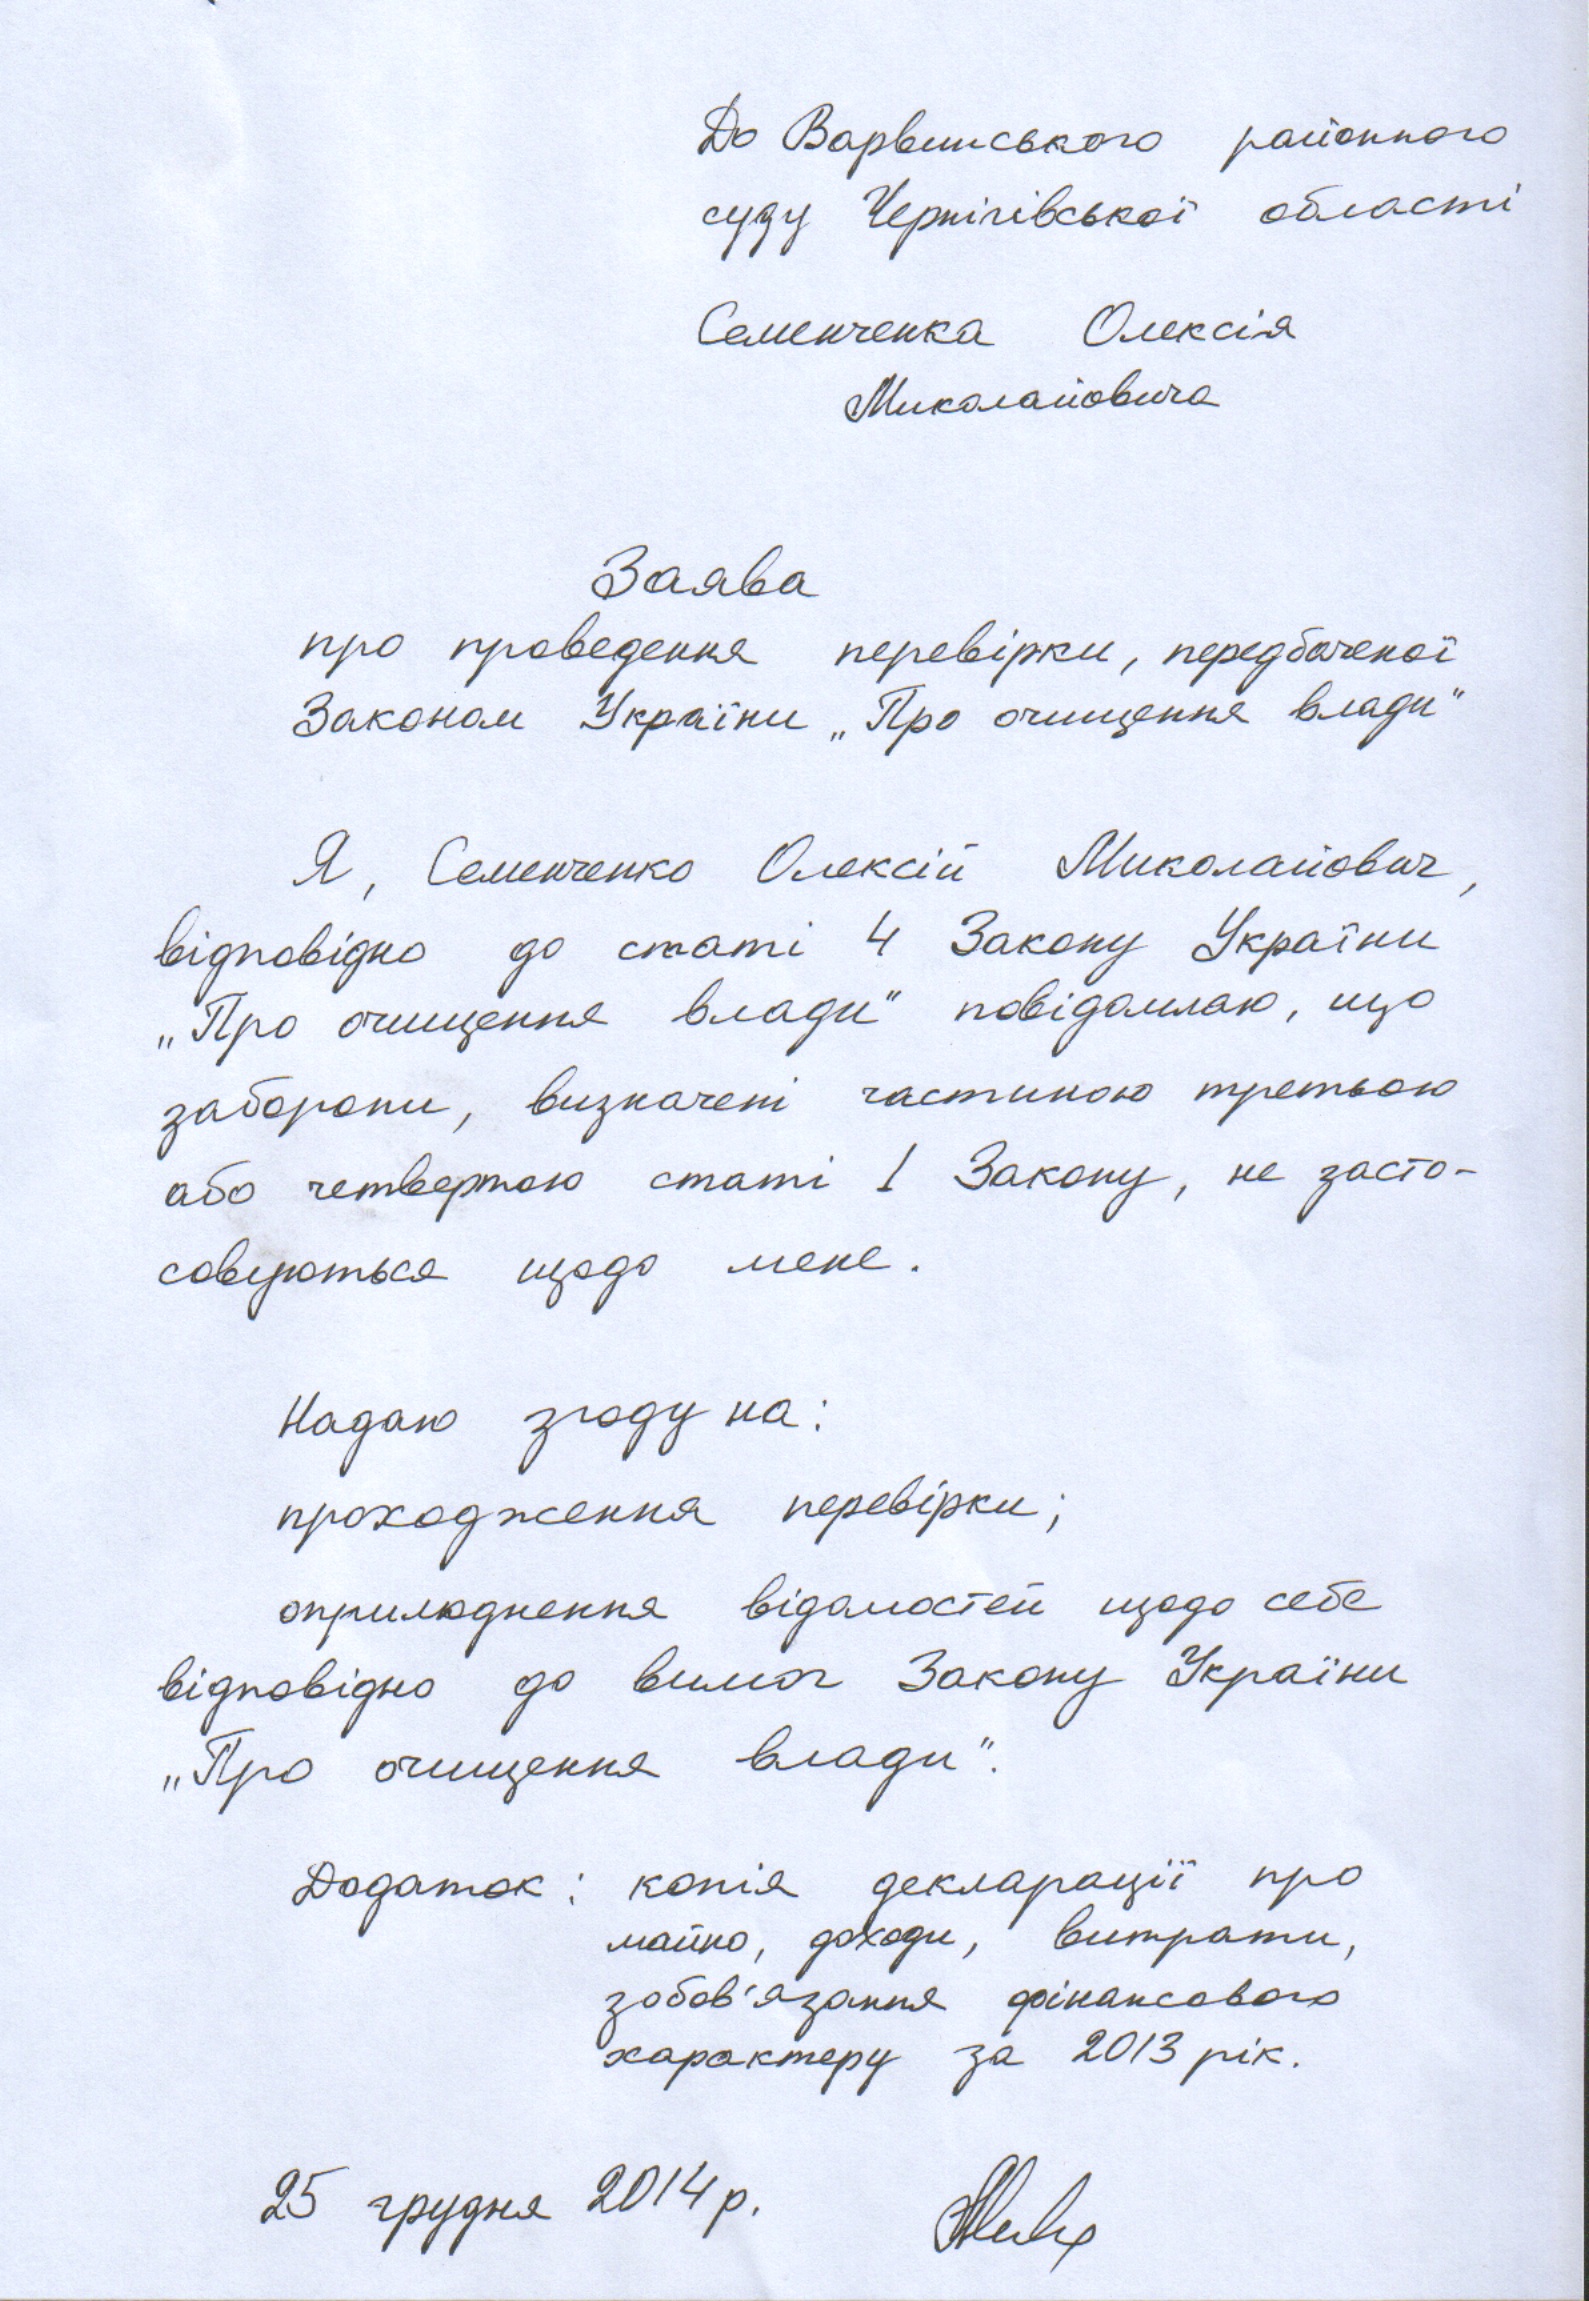 До Варвинського районного
суду Чернігівської області
Семенченка Олексія
Миколайовича
Заява
про проведення перевірки, передбаченої
Законом України „Про очищення влади"
Я, Семенченко Олексій Миколайович,
відповідно до статі 4 Закону України
„Про очищення влади" повідомляю, що
заборони, визначені частиною третьою
або четвертою статі 1 Закону, не засто-
совуються щодо мене.
Надаю згоду на:
проходження перевірки;
оприлюднення відомостей щодо себе
відповідно до вимог Закону України
„Про очищення влади".
Додаток: копія декларації про
майно, доходи, витрати,
зобов'язання фінансового
характеру за 2013 рік.
25 грудня 2014 р.